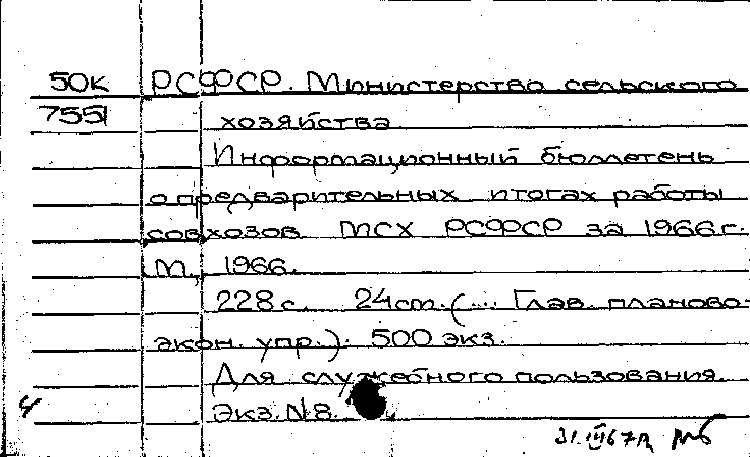 50к РСФСР. Министерство сельского
7551 хозяйства
Информационный бюллетень
о предварительных итогах работы
совхозов МСХ РСФСР за 1966 г.
М., 1966.
228 с. 24 cm. (... Глав. планово-
экон. упр.). 500 экз.
Для служебного пользования.
Экз. N 8.
4
31.III 67